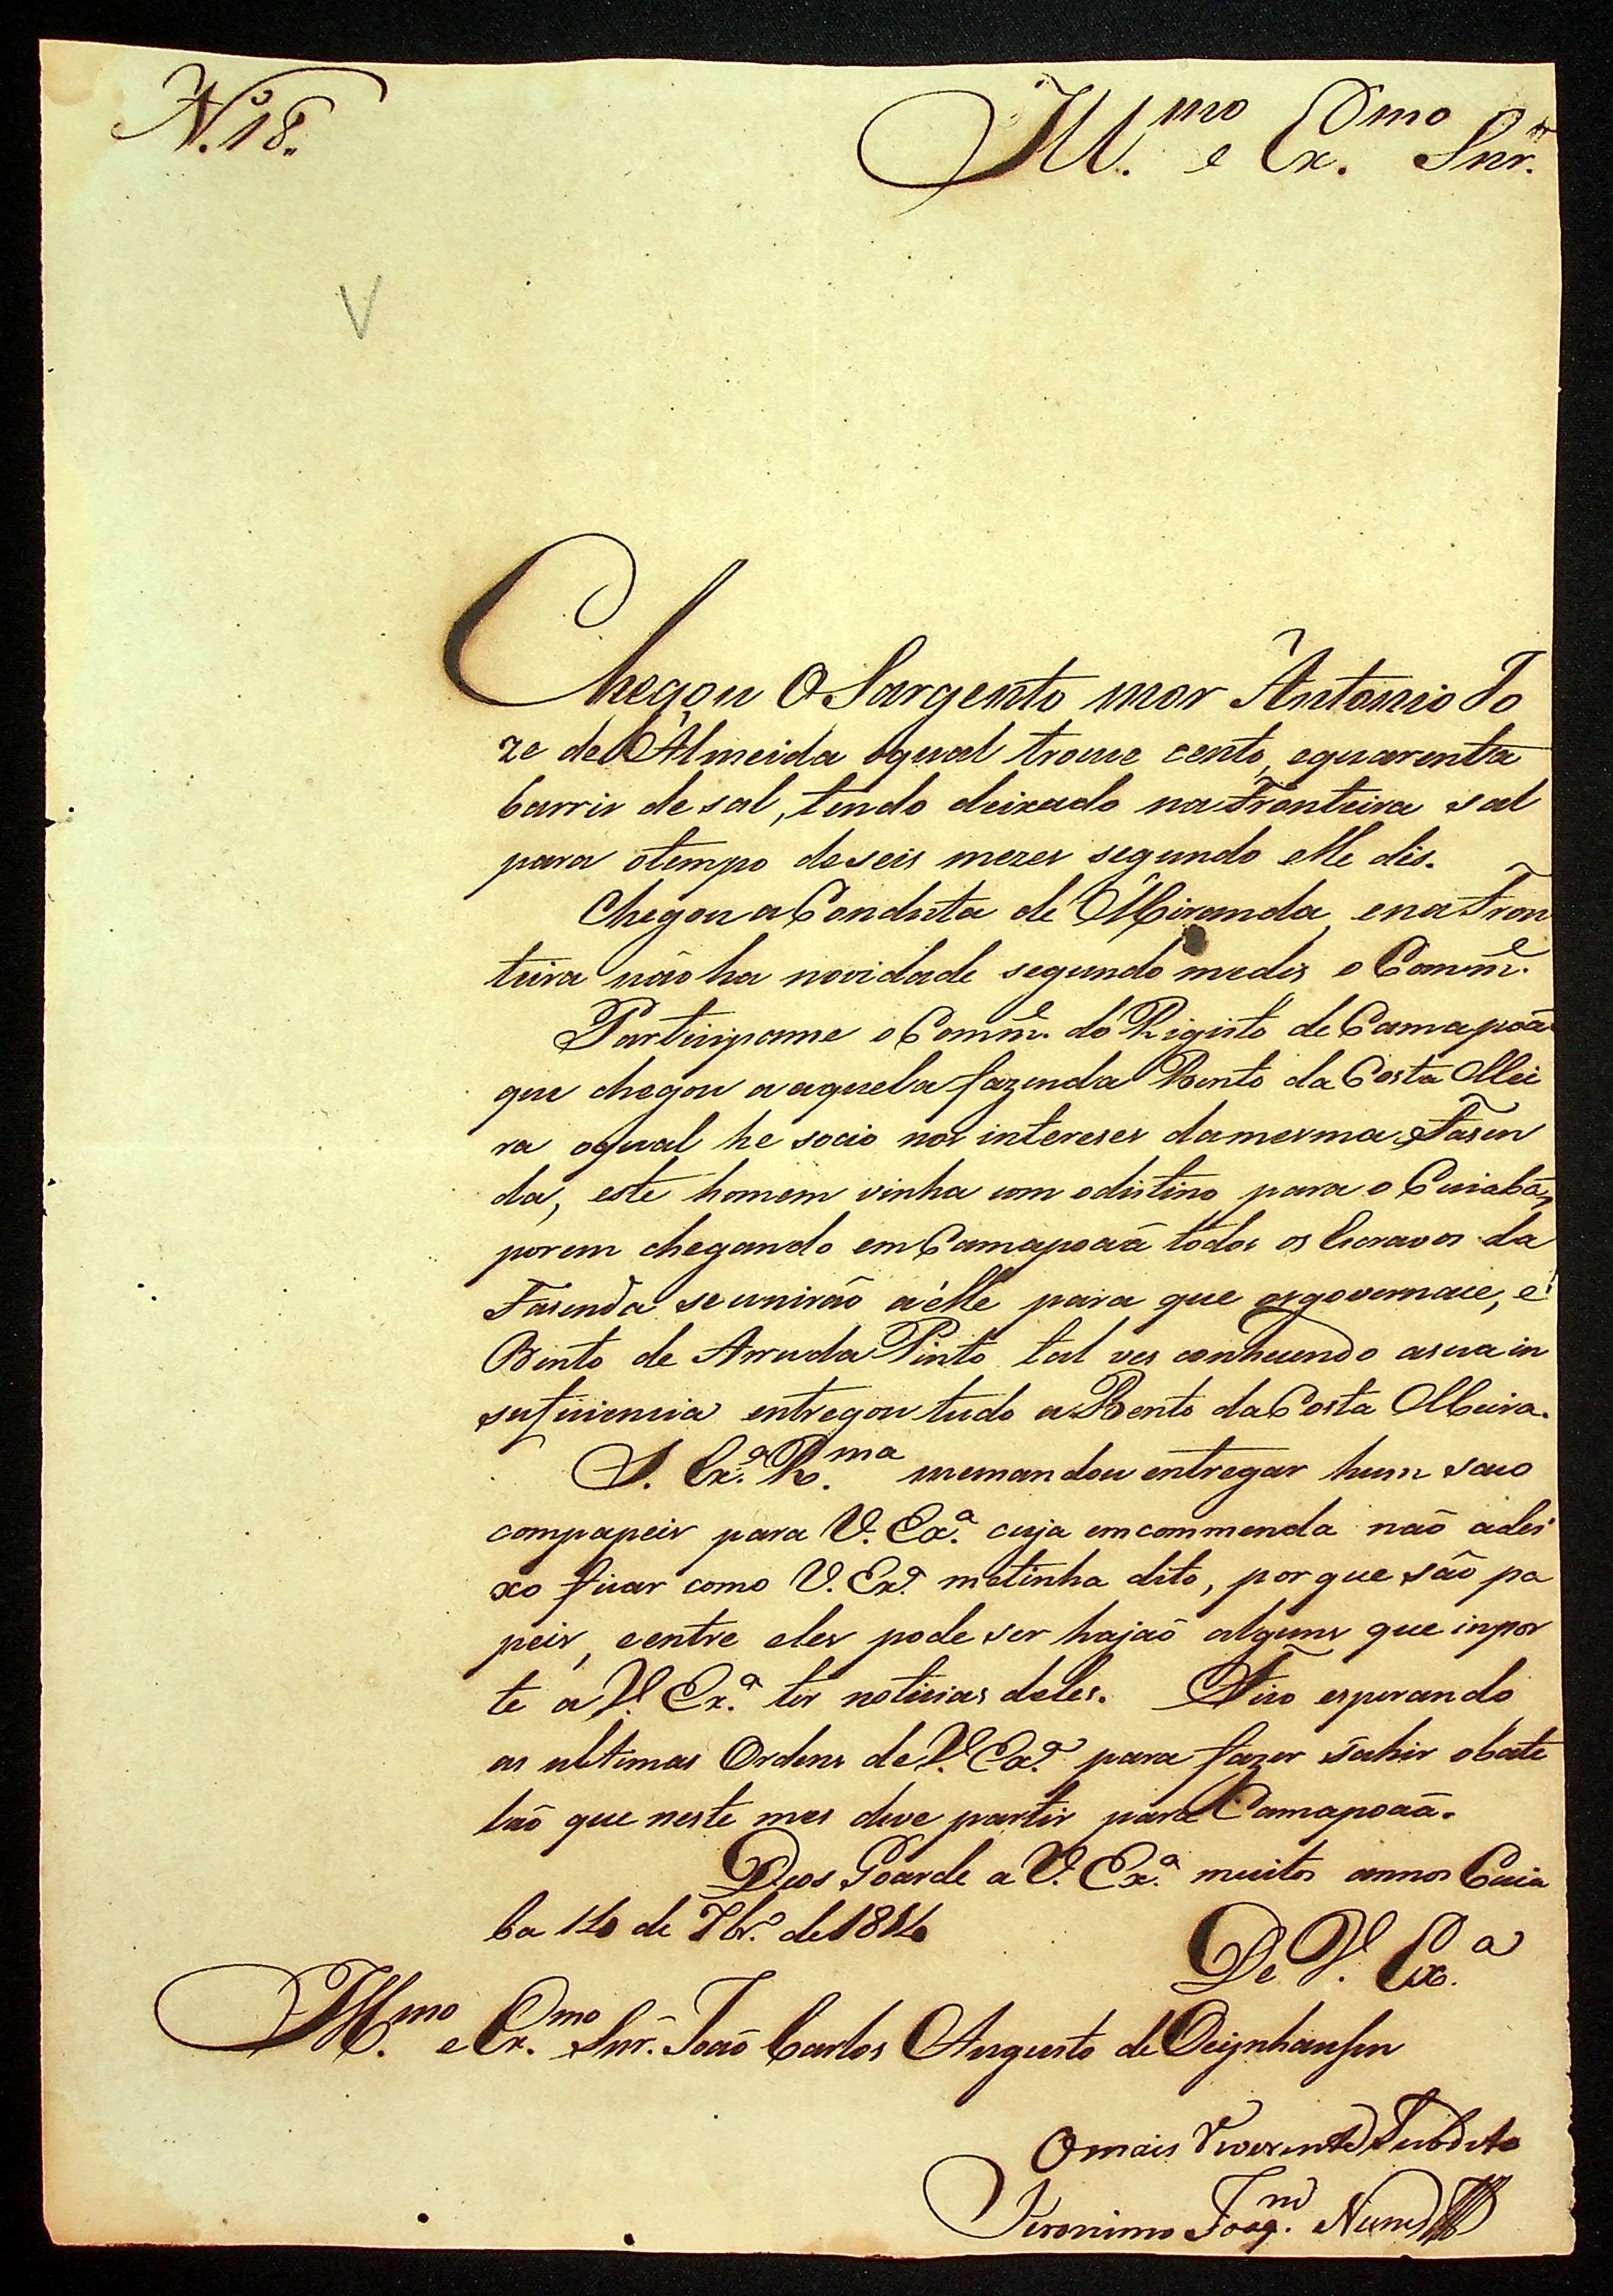 N.º 18.
Ill.mo e Ex.mo Snr.
V
Chegou O Sargento mor Antonio Jo
ze de Almeida oqual trouce cento, equarenta
barris de sal, tendo deixado na Fronteira sal
para otempo de seis mezes segundo elle dis.
Chegou a Conduta de Miranda, ena Fron
teira não ha novidade segundo medis o Comm.e
Participame o Comm.e do Rigisto de Camapoã
que chegou a aquela fazenda Bento da Costa Mei
ra oqual he socio nos intereses damesma Fasen
da, este homem vinha com odistino para o Cuiabá,
porem chegando em Camapoaã todos os Escravos da
Fasenda se unirão a elle para que osgovernace, e
Bento de Arruda Pinto tal ves conhecendo asua in
suficiencia entregou tudo a Bento da Costa Meira.
S. Ex.ª R.ma memandou entregar hum saco
compapeis para V. Ex.ª cuja emcommenda não adei
xo ficar como V. Ex.ª metinha dito, por que são pa
peis, eentre eles pode ser hajaõ alguns que inpor
te a V. Ex.ª ter noticias deles. Fico esperando
as ultimas Ordens de V. Ex.ª para fazer sahir obate
laõ que neste mes deve partir para Camapoaã.
Deos Goarde a V. Ex.ª muitos annos Cuia
ba 14 de 7br.º de 1814
De V. Ex.ª
Ill.mo e Ex.mo Snr. João Carlos Augusto de Oeijnhausen
Omais Reverente Subdito
Jeronimo Joaq.m Nunes